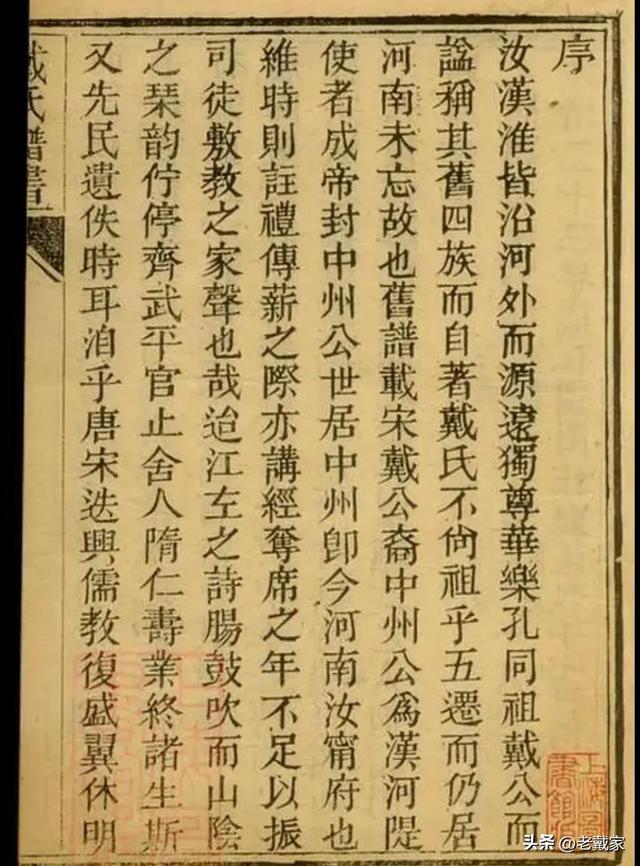 序
汝漢淮皆沿河外而源遠獨尊華樂孔同祖戴公而
諡稱其舊四族而自著戴氏不尙祖乎五遷而仍居
河南未忘故也舊譜載宋戴公裔中州公爲漢河隄
使者成帝封中州公世居中州卽今河南汝甯府也
維時則註禮傳薪之際亦講經奪席之年不足以振
司徒敷教之家聲也哉迨江左之詩腸鼓吹而山陰
之琹韵佇停齊武平官止舍人隋仁壽業終諸生斯
又先民遺佚時耳洎乎唐宋迭興儒教復盛翼休明
戴氏譜書
上海圖書館
头条 @老戴家